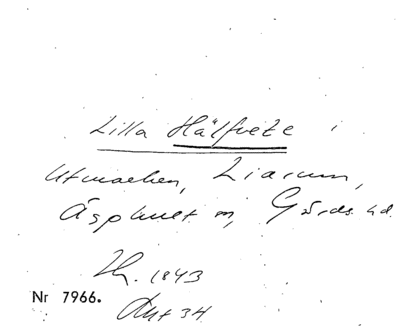 Lilla Hälfvete i
Utmarken, Liarum,
Äsphult sn, Gärds hd.
1843
Nr 7966.
Akt 34